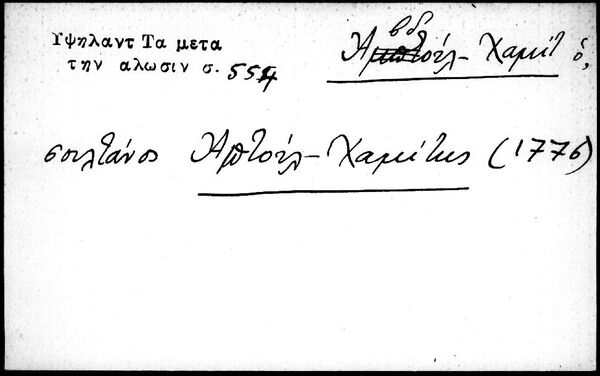 Υψηλαντ Τα μετα
την αλωσιν σ. 554
Αβδούλ-Χαμίτ ὁ,
σουλτάνος Αμπτούλ-Χαμίτης (1776)